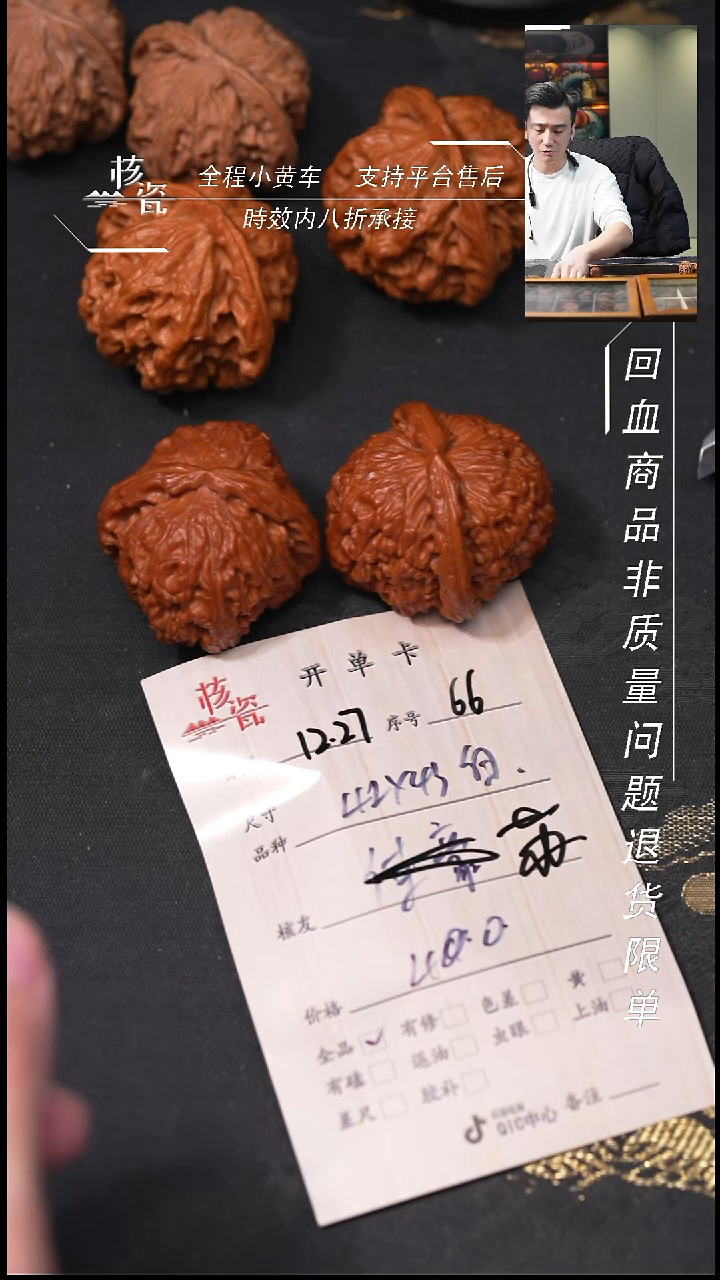 核瓷
全程小黄车 支持平台售后
時效内八折承接
回血商品非质量问题退货限单
核瓷
开单卡
12.27 序号 66
尺寸
品种
核友
价格 400
全品 有修 色差 黄
有硅 返油 虫眼 上油
差尺 胶补
QIC中心 备注